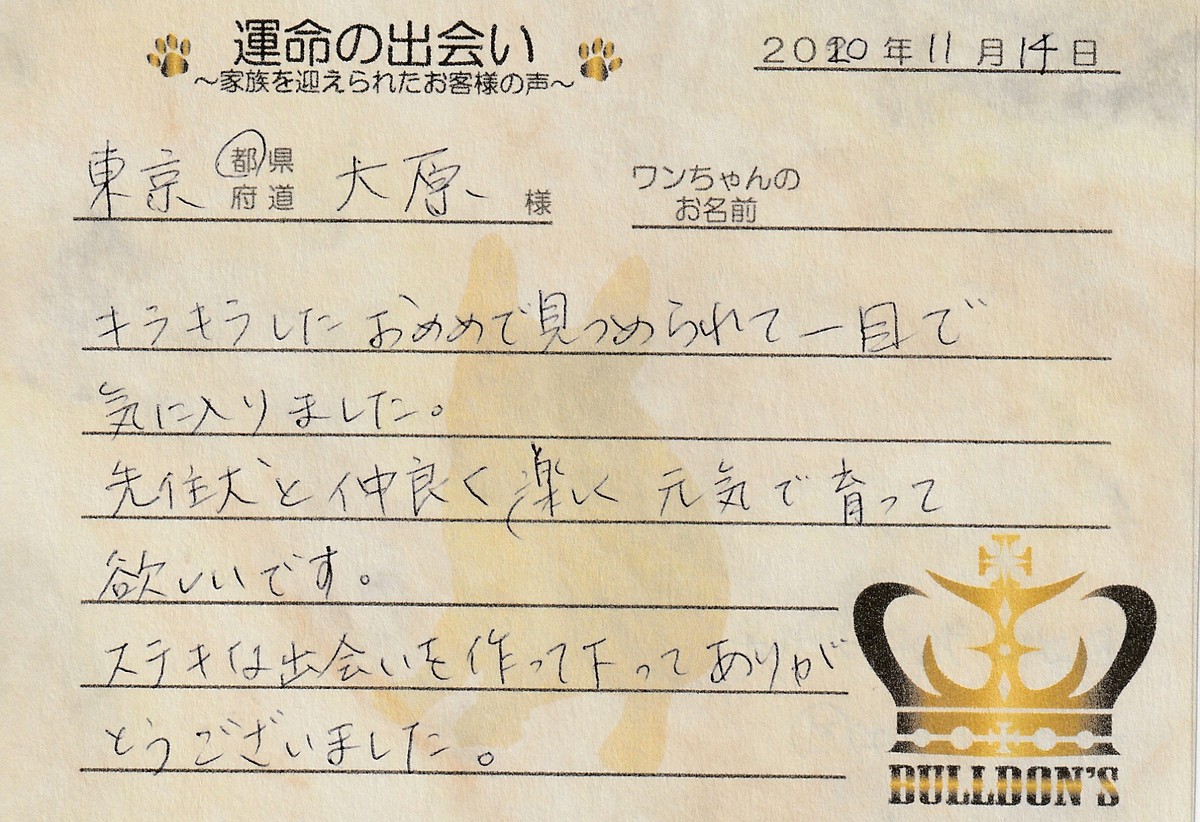 運命の出会い
～家族を迎えられたお客様の声～
2020年11月14日
東京 都県府道 大原 様
ワンちゃんのお名前
キラキラしたおめめで見つめられて一目で
気に入りました。
先住犬と仲良く楽しく元気で育って
欲しいです。
ステキな出会いを作って下ってありが
とうございました。
BULLDON'S